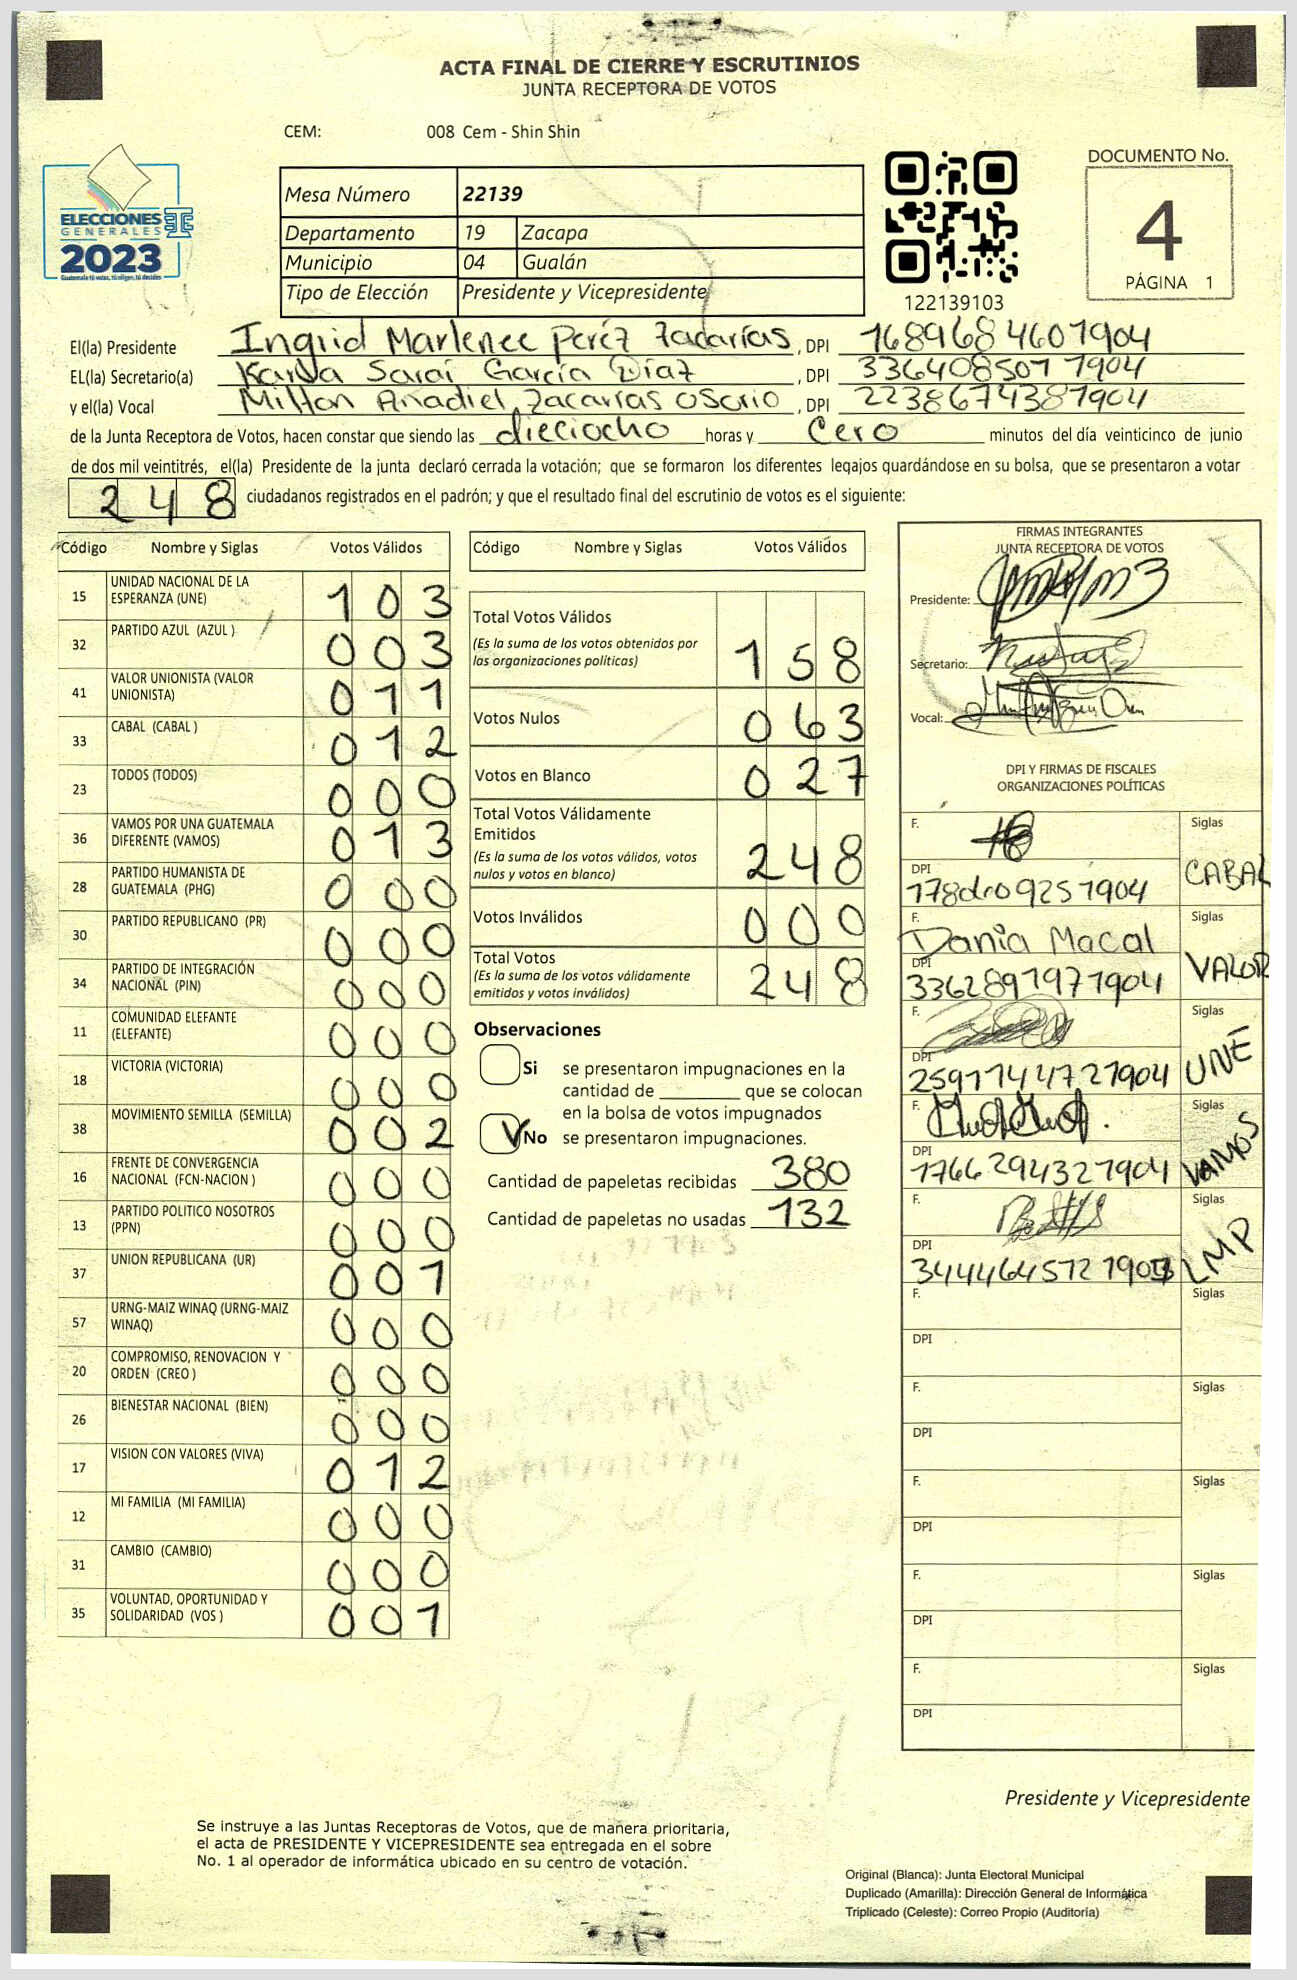 ACTA FINAL DE CIERRE Y ESCRUTINIOS
JUNTA RECEPTORA DE VOTOS
CEM: 008 Cem - Shin Shin
ELECCIONES
GENERALES
2023
Mesa Número 22139
Departamento 19 Zacapa
Municipio 04 Gualán
Tipo de Elección Presidente y Vicepresidente
122139103
DOCUMENTO No.
4
PÁGINA 1
El(la) Presidente Ingrid Marlenee Peréz Zacarías, DPI 1689684601904
EL(la) Secretario(a) Karla Saraí García Díaz, DPI 3364085071904
y el(la) Vocal Milton Anadiel Zacarías Osorio, DPI 2238674381904
de la Junta Receptora de Votos, hacen constar que siendo las dieciocho horas y Cero minutos del día veinticinco de junio
de dos mil veintitrés, el(la) Presidente de la junta declaró cerrada la votación; que se formaron los diferentes legajos guardándose en su bolsa, que se presentaron a votar
248 ciudadanos registrados en el padrón; y que el resultado final del escrutinio de votos es el siguiente:
Código Nombre y Siglas Votos Válidos
15 UNIDAD NACIONAL DE LA ESPERANZA (UNE) 103
32 PARTIDO AZUL (AZUL ) 003
41 VALOR UNIONISTA (VALOR UNIONISTA) 011
33 CABAL (CABAL ) 012
23 TODOS (TODOS) 000
36 VAMOS POR UNA GUATEMALA DIFERENTE (VAMOS) 013
28 PARTIDO HUMANISTA DE GUATEMALA (PHG) 000
30 PARTIDO REPUBLICANO (PR) 000
34 PARTIDO DE INTEGRACIÓN NACIONAL (PIN) 000
11 COMUNIDAD ELEFANTE (ELEFANTE) 000
18 VICTORIA (VICTORIA) 000
38 MOVIMIENTO SEMILLA (SEMILLA) 002
16 FRENTE DE CONVERGENCIA NACIONAL (FCN-NACION ) 000
13 PARTIDO POLITICO NOSOTROS (PPN) 000
37 UNION REPUBLICANA (UR) 001
57 URNG-MAIZ WINAQ (URNG-MAIZ WINAQ) 000
20 COMPROMISO, RENOVACION Y ORDEN (CREO ) 000
26 BIENESTAR NACIONAL (BIEN) 000
17 VISION CON VALORES (VIVA) 012
12 MI FAMILIA (MI FAMILIA) 000
31 CAMBIO (CAMBIO) 000
35 VOLUNTAD, OPORTUNIDAD Y SOLIDARIDAD (VOS ) 001
Código Nombre y Siglas Votos Válidos
Total Votos Válidos 158
(Es la suma de los votos obtenidos por
las organizaciones políticas)
Votos Nulos 063
Votos en Blanco 027
Total Votos Válidamente
Emitidos 248
(Es la suma de los votos válidos, votos
nulos y votos en blanco)
Votos Inválidos 000
Total Votos 248
(Es la suma de los votos válidamente
emitidos y votos inválidos)
Observaciones
Si se presentaron impugnaciones en la
cantidad de ________ que se colocan
en la bolsa de votos impugnados
V No se presentaron impugnaciones.
Cantidad de papeletas recibidas 380
Cantidad de papeletas no usadas 132
FIRMAS INTEGRANTES
JUNTA RECEPTORA DE VOTOS
Presidente:
Secretario:
Vocal:
DPI Y FIRMAS DE FISCALES
ORGANIZACIONES POLÍTICAS
F. Siglas CABAL
DPI
F. Dania Macal Siglas VALOR
DPI 3362897971904
F. Siglas UNE
DPI 2597744721904
F. Siglas VAMOS
DPI 1766294321904
F. Siglas LMP
DPI
F. Siglas
DPI
F. Siglas
DPI
F. Siglas
DPI
F. Siglas
DPI
F. Siglas
DPI
Presidente y Vicepresidente
Se instruye a las Juntas Receptoras de Votos, que de manera prioritaria,
el acta de PRESIDENTE Y VICEPRESIDENTE sea entregada en el sobre
No. 1 al operador de informática ubicado en su centro de votación.
Original (Blanca): Junta Electoral Municipal
Duplicado (Amarilla): Dirección General de Informática
Triplicado (Celeste): Correo Propio (Auditoría)